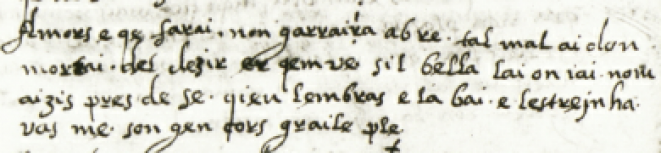 Amors e qe farai · non garraira ab re · tal mal ai don
morrai · del dezir er qem ve sil bella lai on iai · nom
aizis pres de se · qieu lembras e la bai · e lestreinha
vas me · son gen cors graile ple